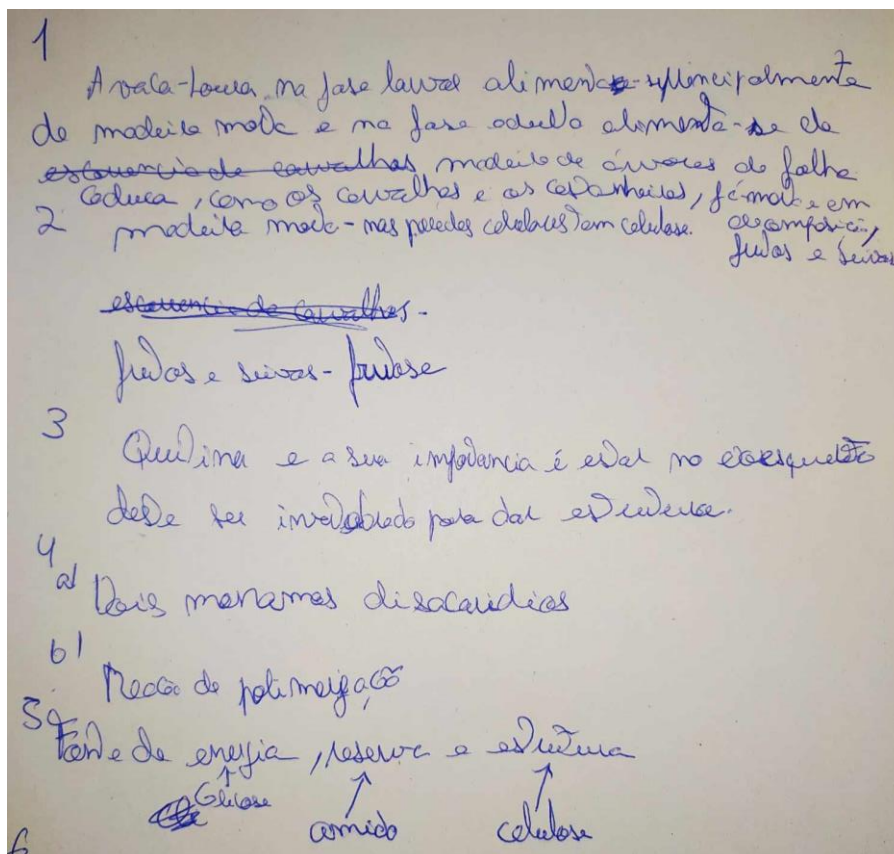 1
A vaca-loura, na fase larval alimenta-se principalmente
de madeira morta e na fase adulta alimenta-se de
escorrencia de carvalhos, madeira de árvores de folha
caduca, como os carvalhos e os castanheiros, já morta e em
decomposição,
frutos e seivas
2 madeira morta - nas paredes celulares tem celulose.
escorrencia de carvalhos -
frutos e seivas - frutose
3
Quitina e a sua importancia é estar no exoesqueleto
deste ser invertebrado para dar estrutura.
4
a) Dois monomeros disacaridios
b)
Reação de polimerização
5
Fonte de energia, reserva e estrutura
Glicose
amido
celulose
6